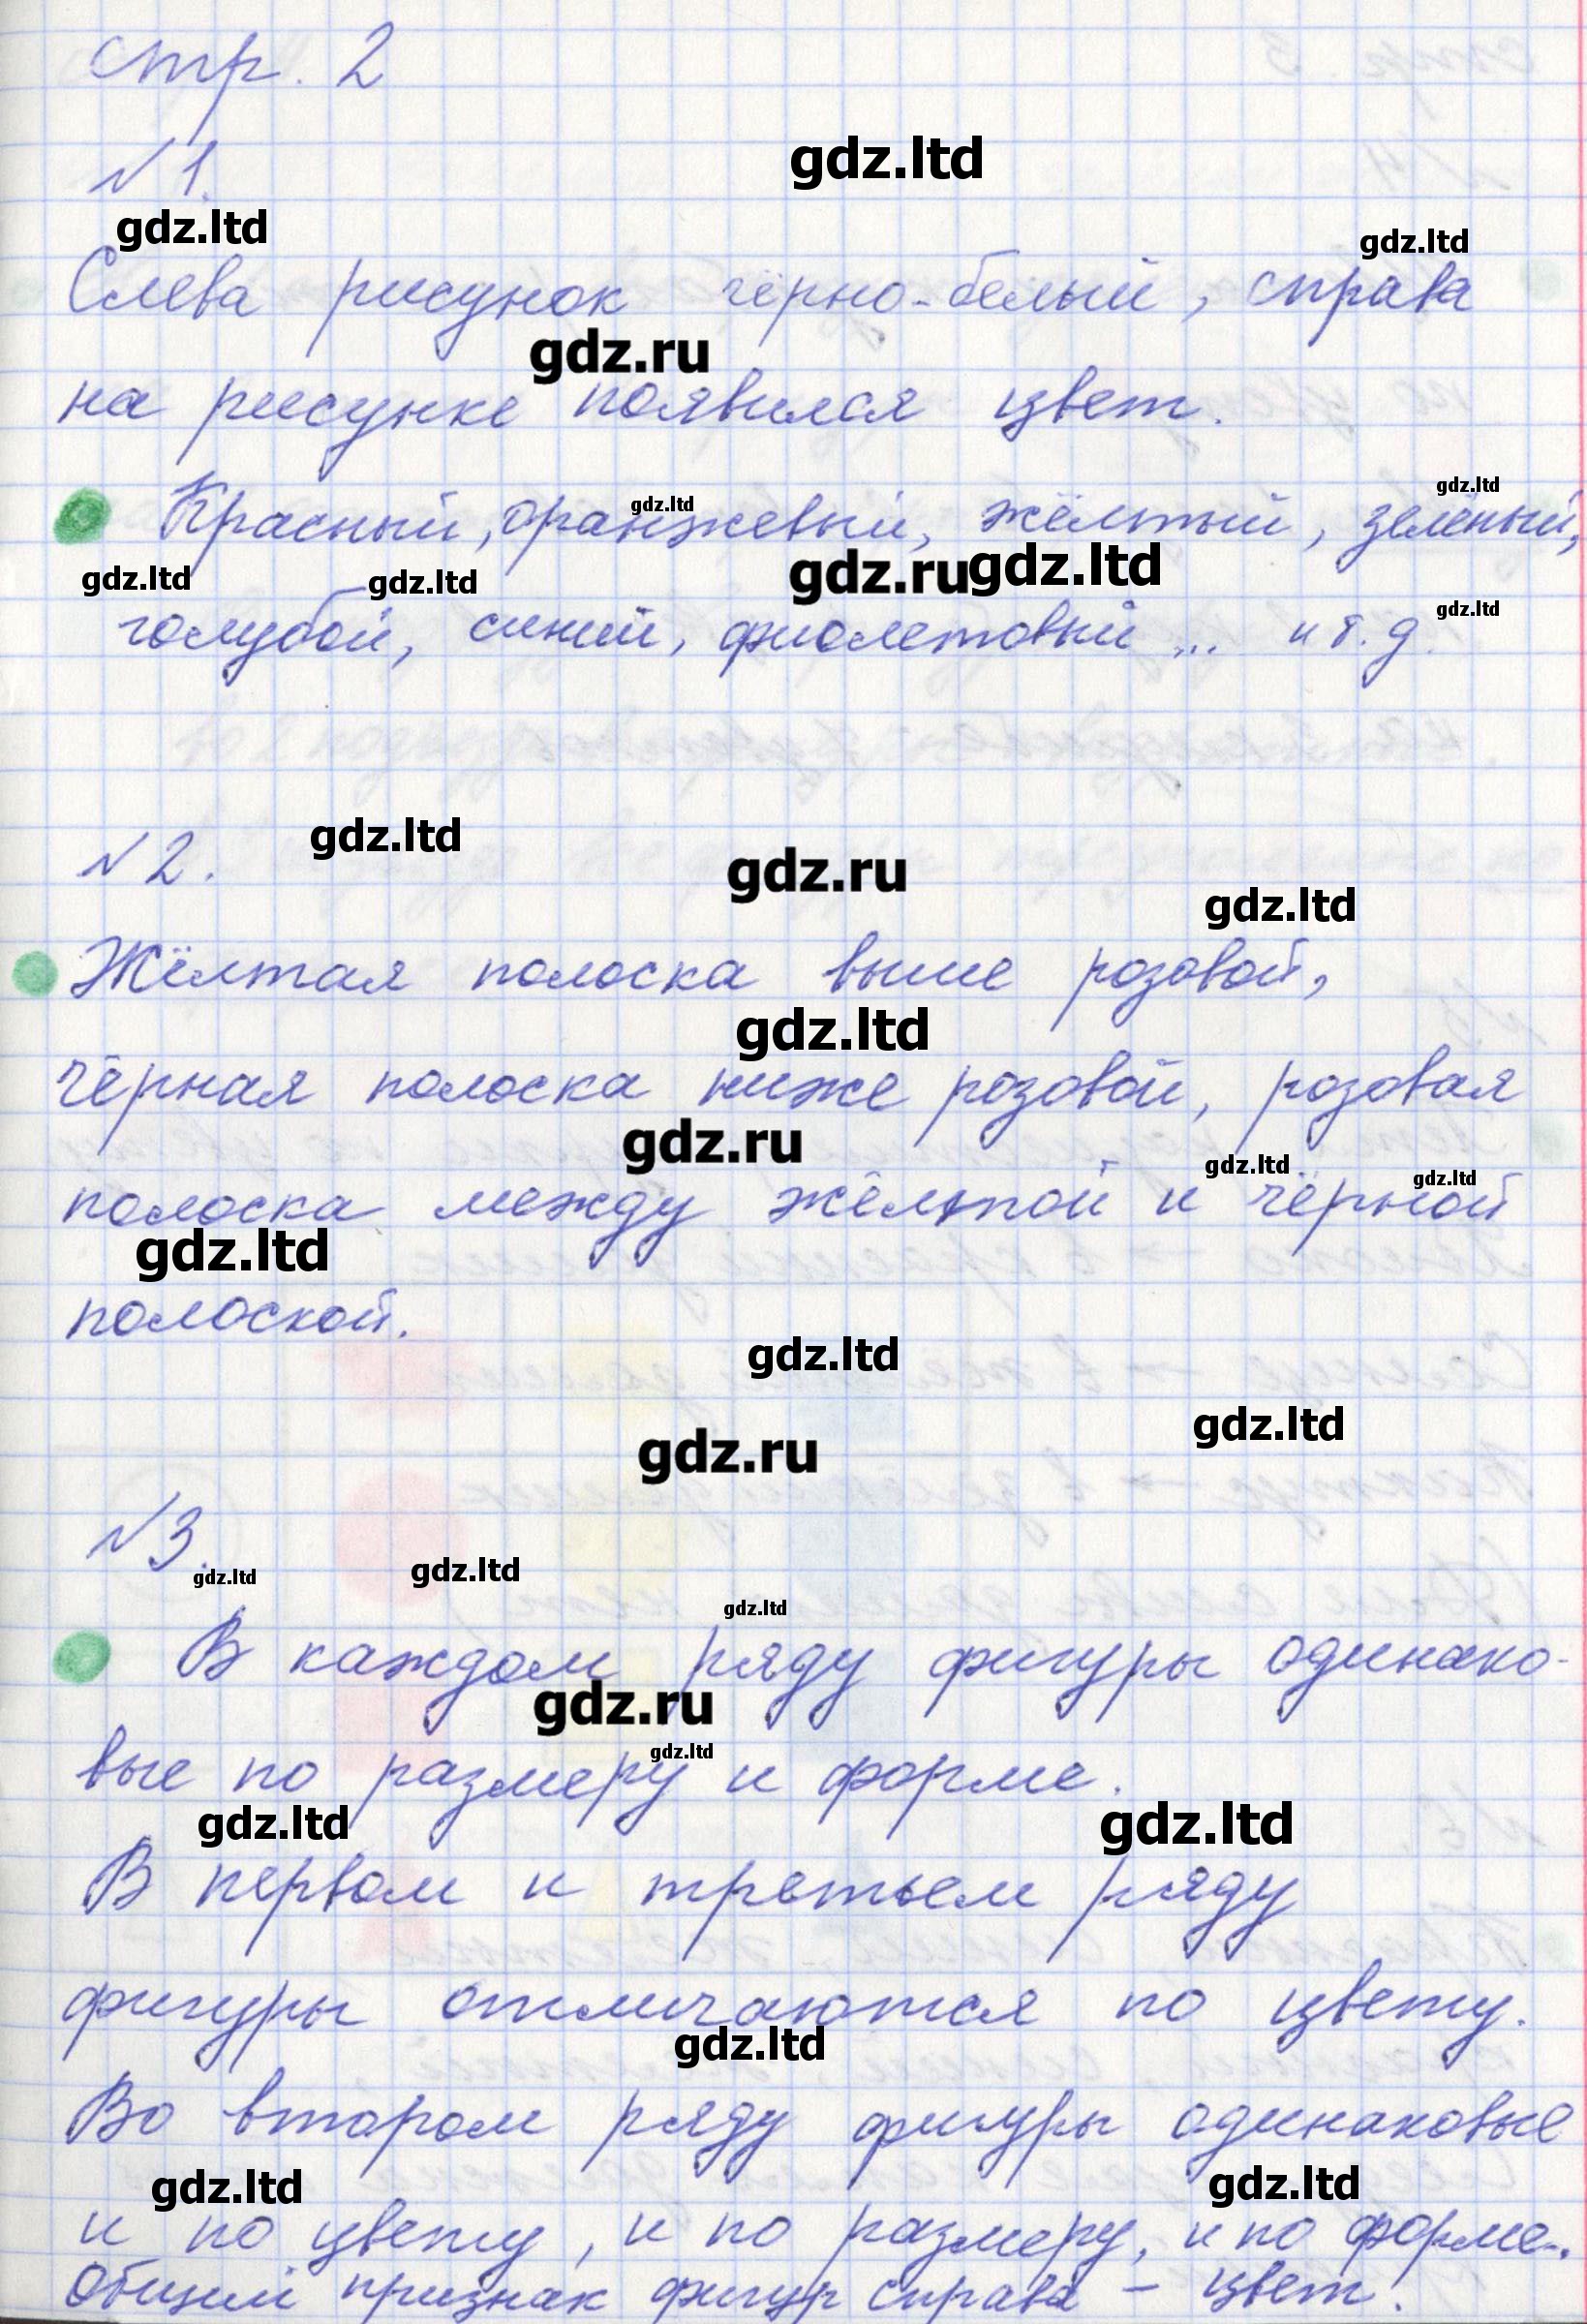 стр. 2
№1.
gdz.ltd
gdz.ltd
gdz.ltd
Слева рисунок чёрно-белый, справа
gdz.ru
на рисунке появился цвет.
gdz.ltd
gdz.ltd
Красный, оранжевый, жёлтый, зелёный,
gdz.ltd
gdz.ltd
gdz.ru
gdz.ltd
gdz.ltd
голубой, синий, фиолетовый ... и т.д.
№2.
gdz.ltd
gdz.ru
gdz.ltd
Жёлтая полоска выше розовой,
gdz.ltd
чёрная полоска ниже розовой, розовая
gdz.ru
gdz.ltd
gdz.ltd
полоска между жёлтой и чёрной
gdz.ltd
полоской.
gdz.ltd
gdz.ltd
gdz.ru
№3.
gdz.ltd
gdz.ltd
gdz.ltd
В каждом ряду фигуры одинако-
gdz.ru
gdz.ltd
вые по размеру и форме.
gdz.ltd
gdz.ltd
В первом и третьем ряду
фигуры отличаются по цвету.
gdz.ltd
Во втором ряду фигуры одинаковые
gdz.ltd
gdz.ltd
и по цвету, и по размеру, и по форме.
Общий признак фигур справа – цвет.